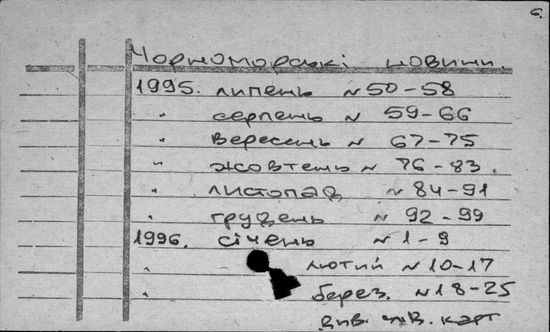 6.
Чорноморські новини.
1995. липень N 50-58
" серпень N 59-66
" вересень N 67-75
" жовтень N 76-83.
" листопад N 84-91
" грудень N 92-99
1996. січень N 1-9
" лютий N 10-17
" берез. N 18-25
див. карт